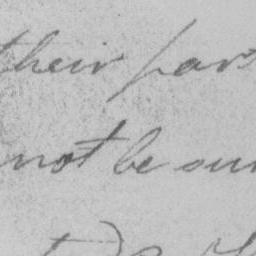 their par
not be sur